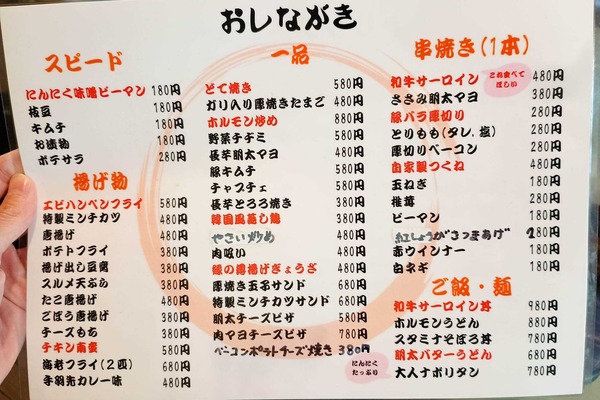 おしながき
スピード
にんにく味噌ピーマン 180円
枝豆 180円
キムチ 180円
お漬物 180円
ポテサラ 280円
揚げ物
エビパンペンフライ 580円
特製ミンチカツ 480円
唐揚げ 480円
ポテトフライ 380円
揚げ出し豆腐 380円
スルメ天ぷら 380円
たこ唐揚げ 480円
ごぼう唐揚げ 380円
チーズもち 380円
チキン南蛮 580円
海老フライ(2匹) 680円
手羽先カレー味 480円
一品
どて焼き 580円
ガリ入り厚焼きたまご 480円
ホルモン炒め 880円
野菜チヂミ 580円
長芋明太マヨ 480円
豚キムチ 580円
チャプチェ 580円
長芋とろろ焼き 380円
韓国風蒸し鶏 380円
やさい炒め 480円
肉吸い 480円
豚の揚げぎょうざ 480円
厚焼き玉子サンド 680円
特製ミンチカツサンド 680円
明太チーズピザ 580円
肉マヨチーズピザ 780円
ベーコンポテトチーズ焼き 380円
にんにく
たっぷり
串焼き(1本)
和牛サーロイン 480円
これ食べて
ほしい
ささみ明太マヨ 380円
豚バラ厚切り 280円
とりもも(タレ,塩) 280円
厚切りベーコン 280円
自家製つくね 480円
玉ねぎ 180円
椎茸 280円
ピーマン 180円
紅しょうがさつまあげ 280円
赤ウインナー 180円
白ネギ 180円
ご飯・麺
和牛サーロイン丼 980円
ホルモンうどん 880円
スタミナそぼろ丼 780円
明太バターうどん 680円
大人ナポリタン 780円